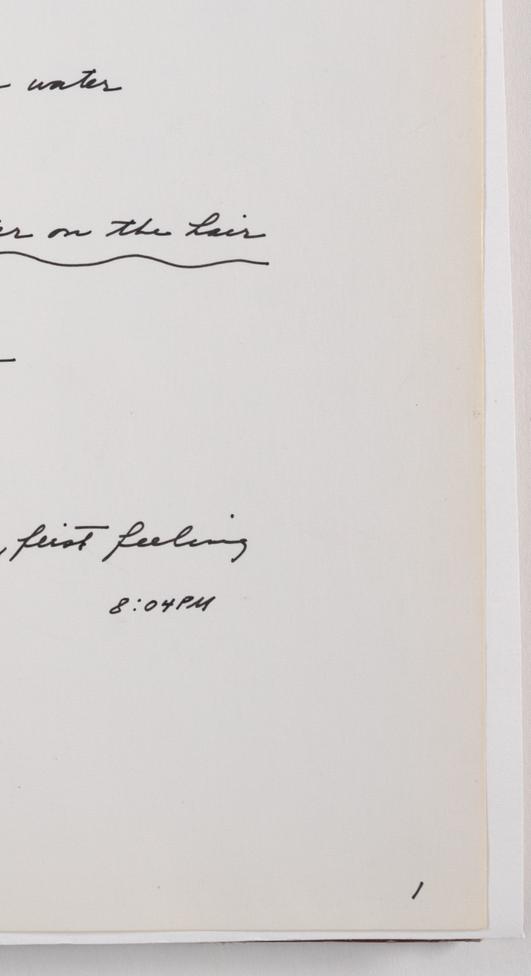 water
on the hair
first feeling
8:04PM
1